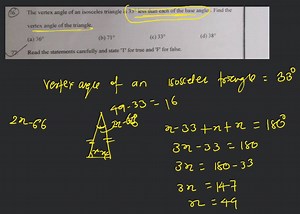 The vertex angle of an isosceles triangle is 33° less than each of the base angle. Find the
vertex angle of the triangle.
(a) 36° (b) 71° (c) 33° (d) 38°
Read the statements carefully and state 'T' for true and 'F' for false.
vertex angle of an isosceles triangle = 33°
49-33 = 16
2x-66
x-33+x+x = 180°
3x-33 = 180
3x = 180-33
3x = 147
x = 49